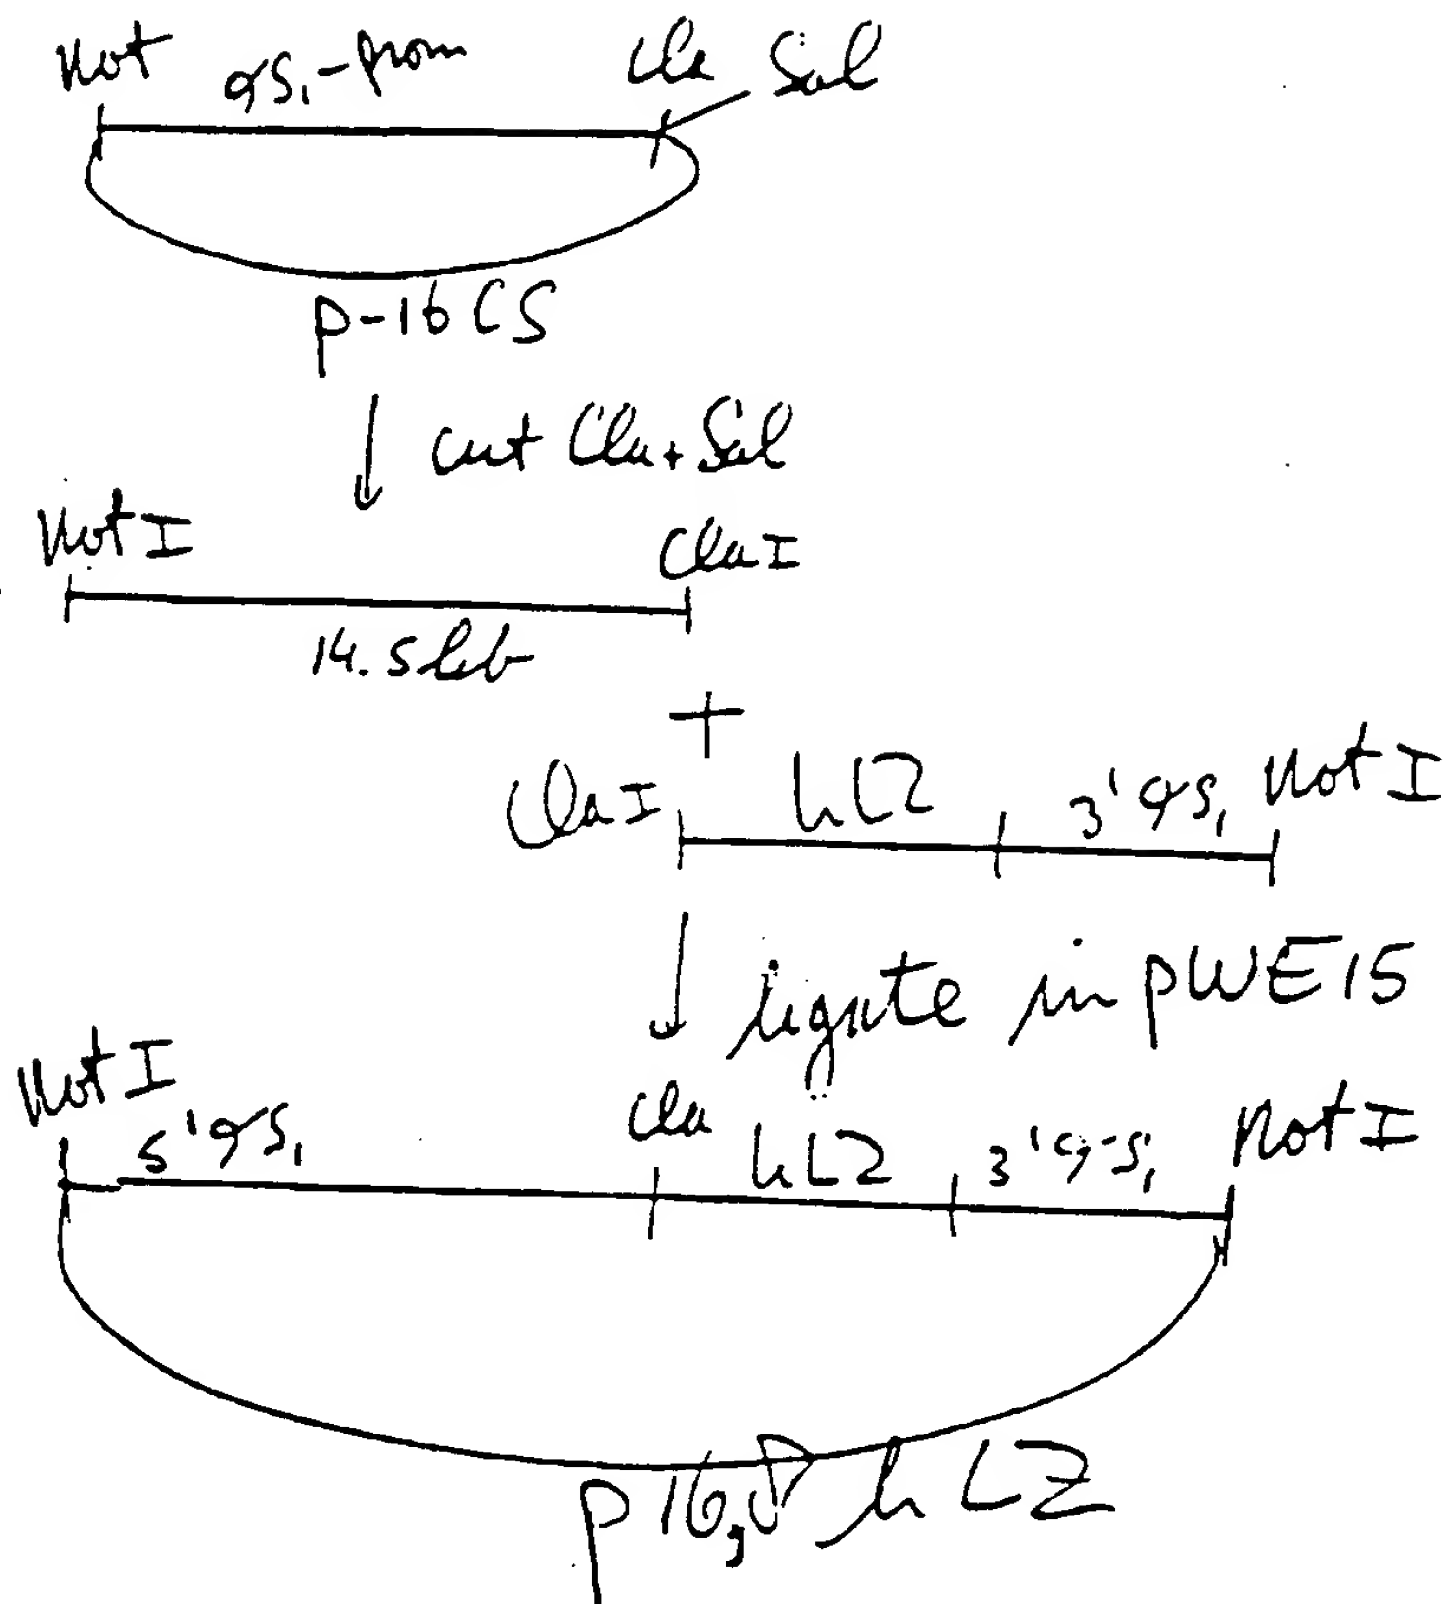 Not αS₁-prom Cla Sal
p-16 CS
cut Cla + Sal
Not I Cla I
14.5 kb
+
Cla I hLZ 3' αS₁ Not I
ligate in pWE15
Not I 5' αS₁ Cla hLZ 3' αS₁ Not I
p16,8 hLZ